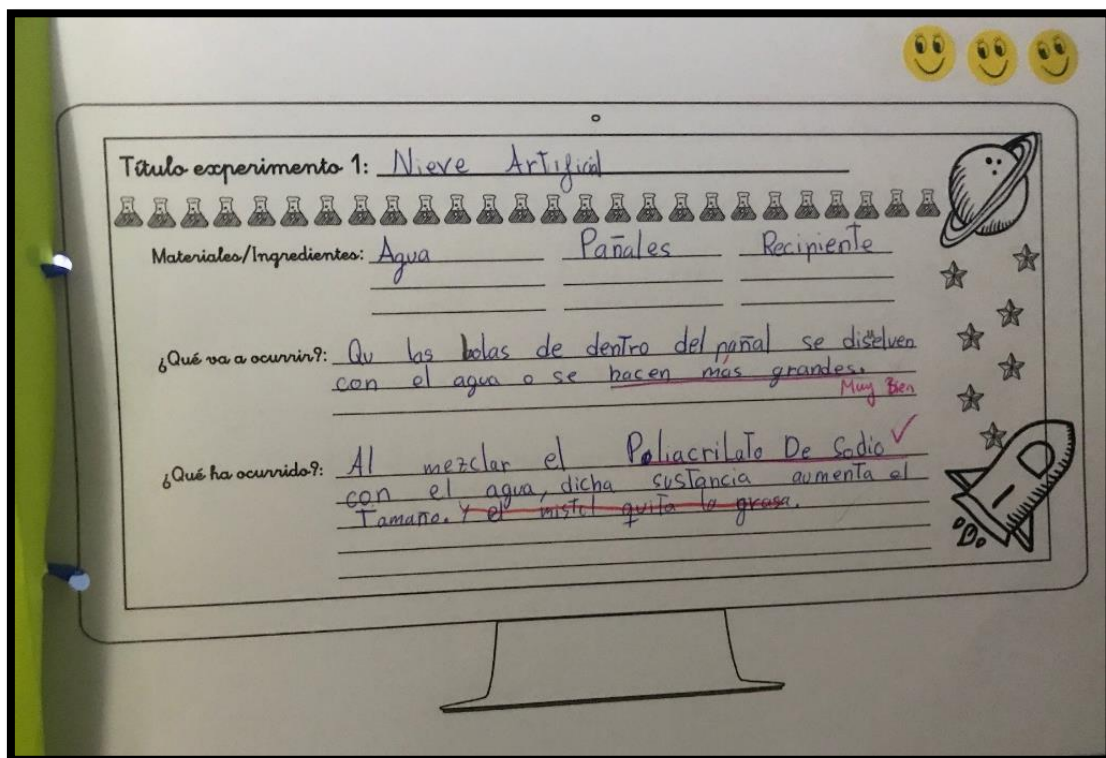 Título experimento 1: Nieve Artificial
Materiales/Ingredientes: Agua Pañales Recipiente
¿Qué va a ocurrir?: Qu las bolas de dentro del pañal se diselven
con el agua o se hacen más grandes.
Muy Bien
¿Qué ha ocurrido?: Al mezclar el Poliacrilato De Sodio
con el agua, dicha sustancia aumenta el
Tamaño. Y el mistol quita la grasa.